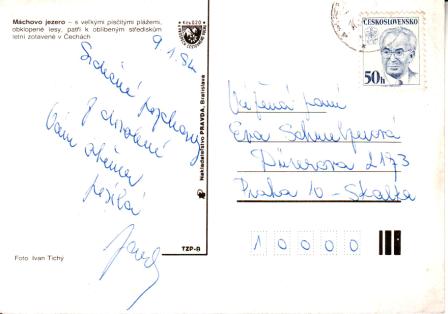 Máchovo jezero – s velkými písčitými plážemi,
obklopené lesy, patří k oblíbeným střediskům
letní zotavené v Čechách
Kčs 0,20
Srdečné pozdravy
z dovolené
Vám
posílá
Foto Ivan Tichý
Nakladatelství PRAVDA, Bratislava
TZP-B
ČESKOSLOVENSKO
50h
Vážená paní
Eva
2173
Praha 10 - Skalka
10000